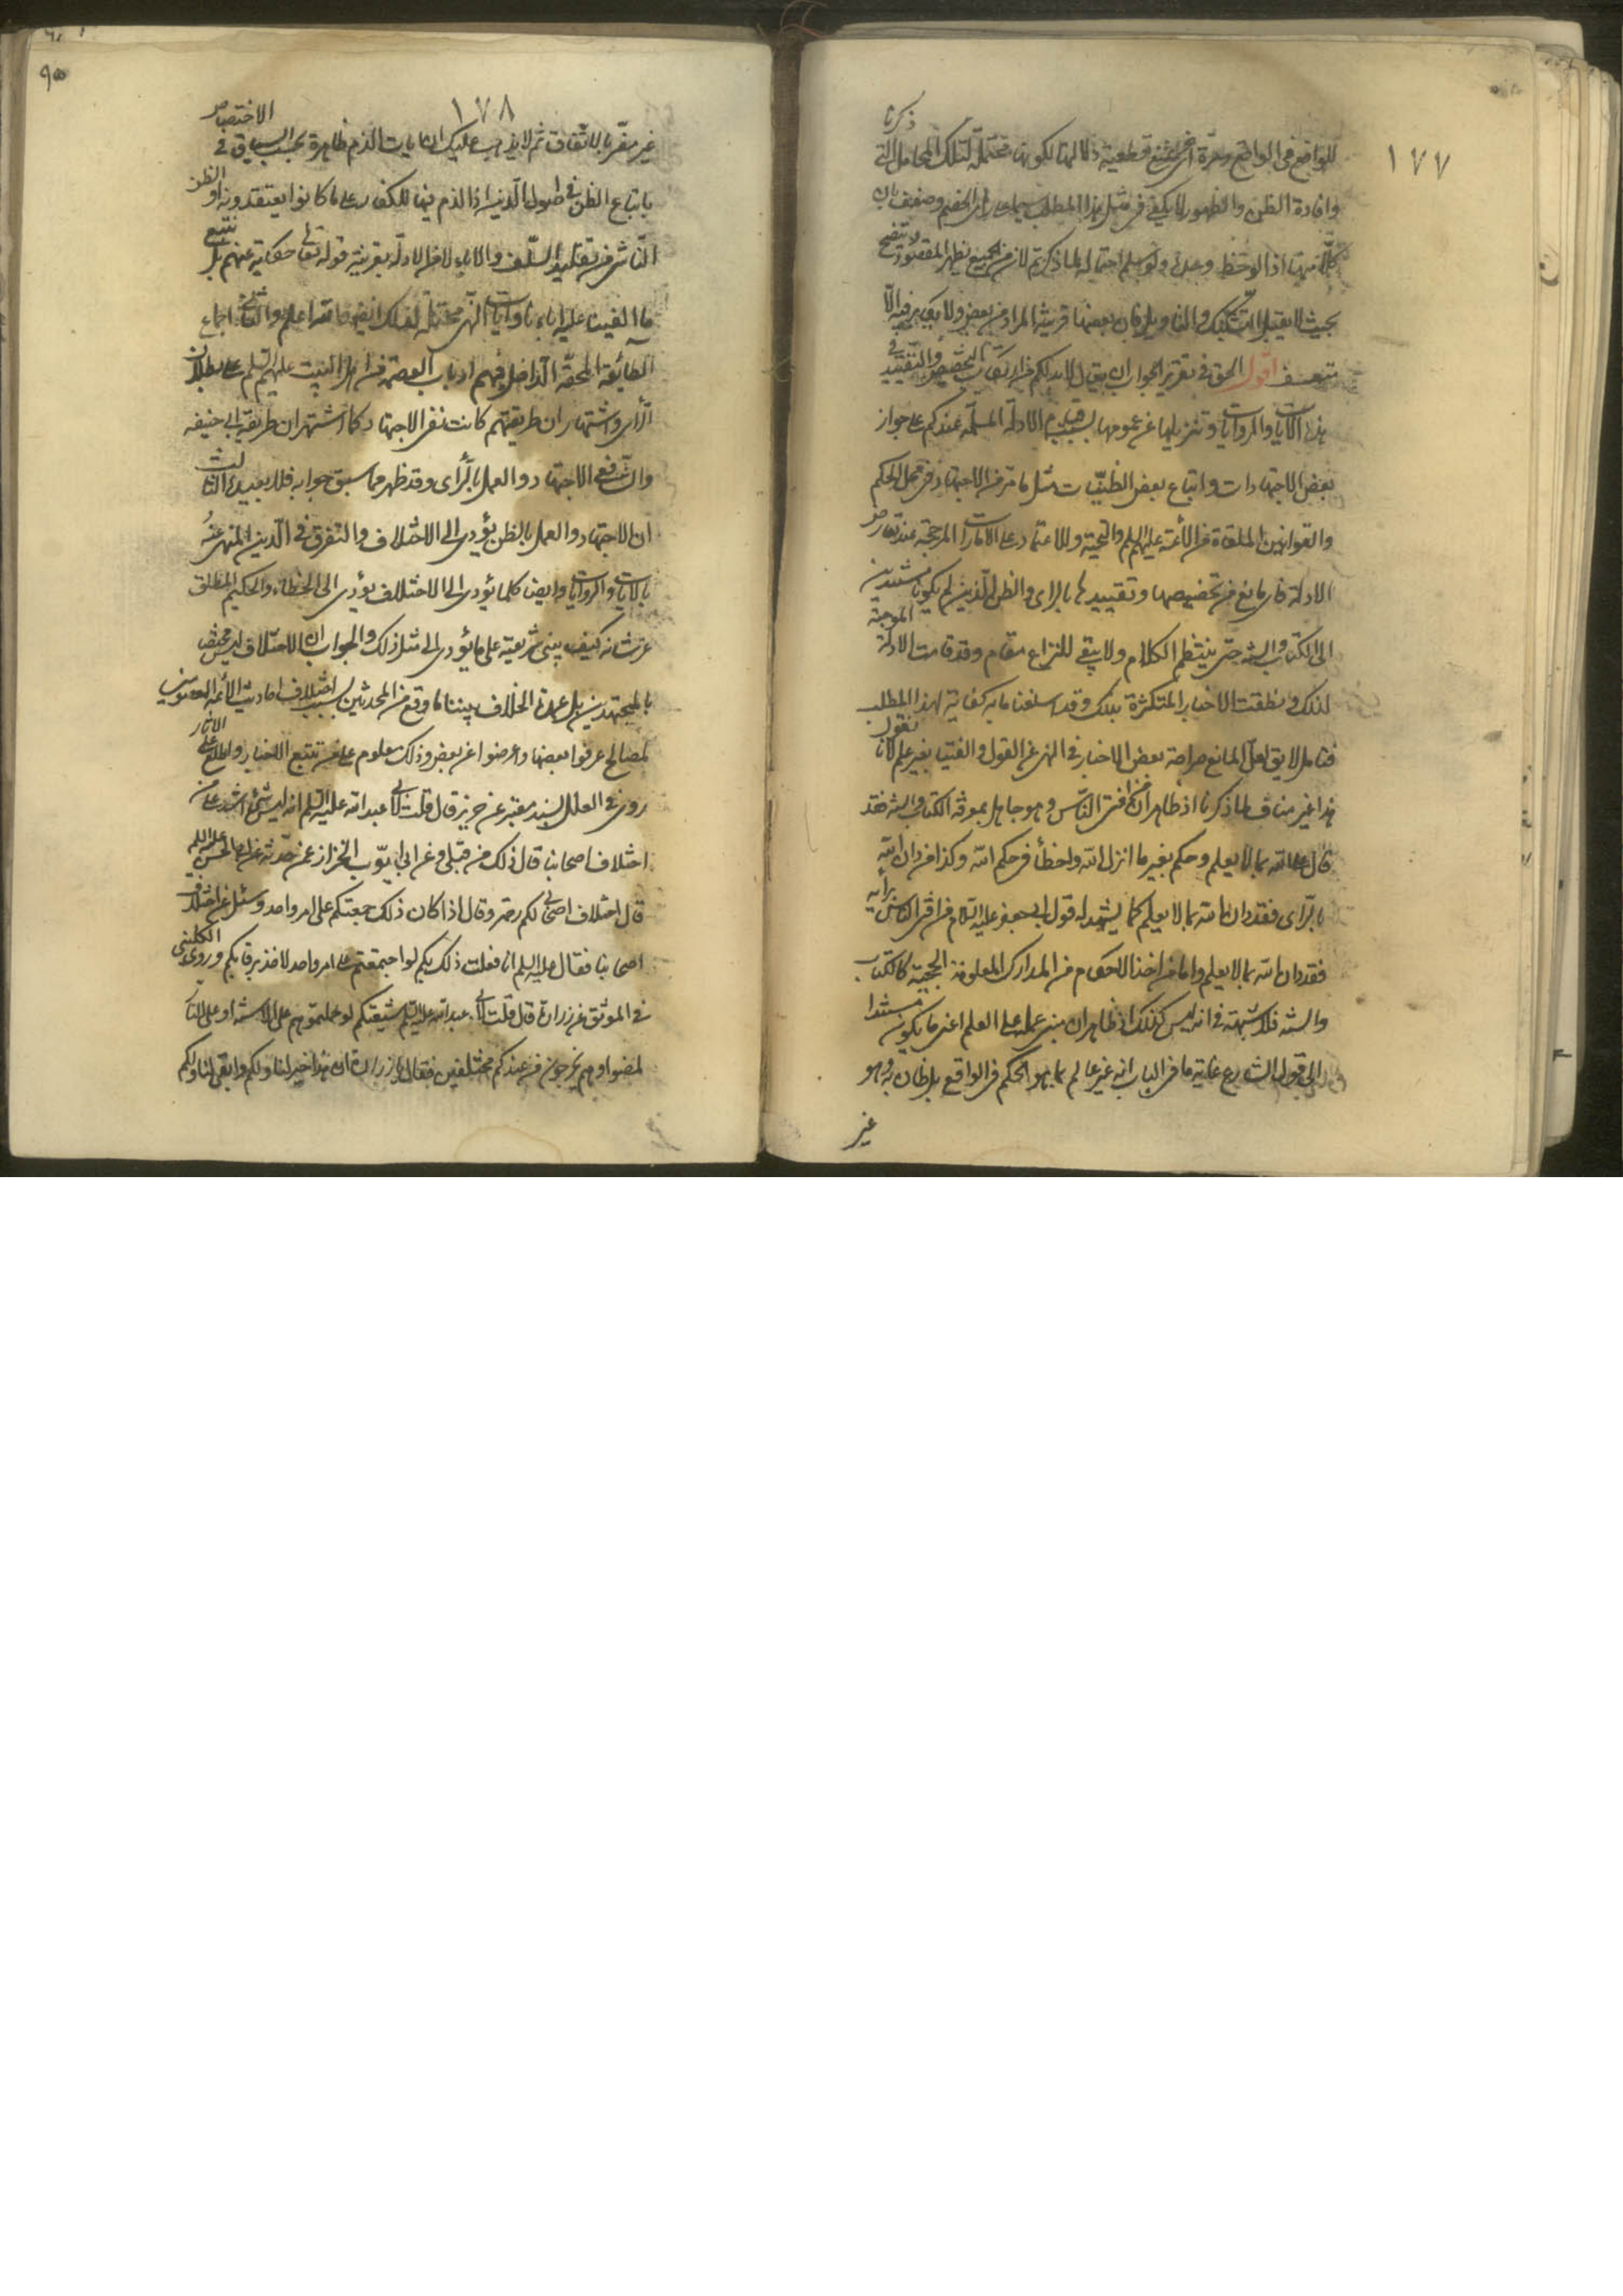 ١٧٧
للواضع في المواضع ومرة اخرى بمنع قطعية دلالتها لكونها محتملة لتلك المحامل التي ذكرنا
وافادة الظن والظهور لا يكفي في مثل هذا المطلب سيما على راى الخصم وضعف بان
كلا منها اذا لوحظ وحده ولو سلم احتماله لما ذكرتم لان من الجميع يظهر المقصود ويتضح
بحيث لا يقبل التشكيك والتاويل فان بعضها قرينة المراد من بعض ولا يكابر فيه الا
متعسف اقول الحق في تقرير الجواب ان يقال لابد لكم من ارتكاب التخصيص والتقييد في
هذه الايات والروايات وتنزيلها عن عمومها بسبب قيام الادلة المسلمة عندكم على جواز
بعض الاجتهادات واتباع بعض الظنيات مثل ما مر من الاجتهاد في محل الحكم
والقوانين الملقاة من الائمة عليهم السلم والتحية والاعتماد على الامارات المرجحة عند تعارض
الادلة فاى مانع من تخصيصها وتقييدها بالراى والظن الذين لم يكونا مستندين
الى الكتاب والسنة حتى ينتظم الكلام ولا يبقى للنزاع مقام وقد قامت الادلة الموجبة
لذلك ونطقت الاخبار المتكثرة بذلك وقد اسلفنا ما به كفاية لهذا المطلب
فتامل لا يق لعل المانع صراحة بعض الاخبار في النهى عن القول والفتيا بغير علم لانا نقول
هذا غير مناف لما ذكرنا اذ ظاهر ان من افتى الناس وهو جاهل بموقة الكتاب والسنة فقد
قال على الله بما لا يعلم وحكم بغير ما انزل الله واخطأ في حكم الله وكذا من دان الله
بالراى فقد دان الله بما لا يعلم كما يشهد له قول ابي جعفر عليه السلام من افتى الناس برايه
فقد دان الله بما لا يعلم واما من اخذ الاحكام من المدارك المعلومة الحجية كالكتاب
والسنة فلا شبهة في انه ليس كذلك اذ ظاهر ان مبنى عمله على العلم اعنى ما يكون مستندا
الى قول الشارع غاية ما في الباب انه غير عالم بما هو الحكم في الواقع بل ظان به وهو
غير
١٧٨
غير مضر بالاتفاق ثم لا يذهب عليك ان ايات الذم ظاهرة بحسب السياق في الاختصاص
باتباع الظن في اصول الدين اذ الذم فيها للكفار على ما كانوا يعتقدونه او الظن
الناشى من تقليد السلف والاباء لا من الادلة بقرينة قوله تعالى حكاية عنهم بل نتبع
ما الفينا عليه اباءنا وايات النهى محتملة لذلك ايضا والله اعلم والثاني اجماع
الطائفة المحقة الداخل فيهم ارباب العصمة من اهل البيت عليهم السلم على بطلان
الراى واشتهار ان طريقتهم كانت نفى الاجتهاد كما اشتهر ان طريقة ابى حنيفه
والشافعى الاجتهاد والعمل بالراى وقد ظهر مما سبق جوابه فلا نعيده الثالث
ان الاجتهاد والعمل بالظن يؤدى الى الاختلاف والتفرق في الدين المنهى عنه
بالايات والروايات وايضا كلما يؤدى الى الاختلاف يؤدى الى الخطاء والحكيم المطلق
عز شانه كيف يبنى شريعته على ما يؤدى الى مثل ذلك والجواب ان الاختلاف ليس مختصا
بالمجتهدين بل عمدة الخلاف بيننا ما وقع من المحدثين بسبب اختلاف احاديث الائمة المعصومين
لمصالح عرفوا بعضها واعرضوا عن بعض وذلك معلوم على من تتبع الاخبار واطلع على الاثار
روى في العلل بسند معتبر عن حريز قال قلت لابى عبد الله عليه السلم انه ليس شئ اشد على من
اختلاف اصحابنا قال ذلك من قبلى وعن ابى ايوب الخزاز عمن حدثه عن ابى الحسن عليه السلم
قال اختلاف اصحابى لكم رحمة وقال اذا كان ذلك جمعتكم على امر واحد وسئل عن اختلاف
اصحابنا فقال عليه السلم انا فعلت ذلك بكم لو اجتمعتم على امر واحد لاخذ برقابكم وروى الكلينى
في الموثق عن زرارة قال قلت لابى عبد الله عليه السلم شيعتكم لو حملتموهم على الاسنة او على النار
لمضوا وهم يخرجون من عندكم مختلفين فقال يا زرارة ان هذا خير لنا ولكم وابقى لنا ولكم